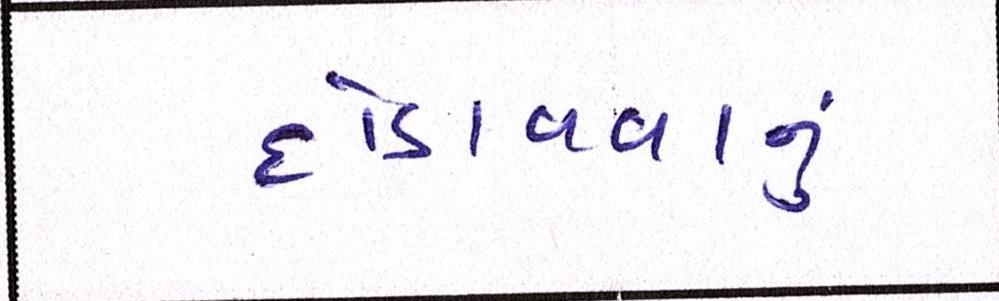 દોડાવવાનું